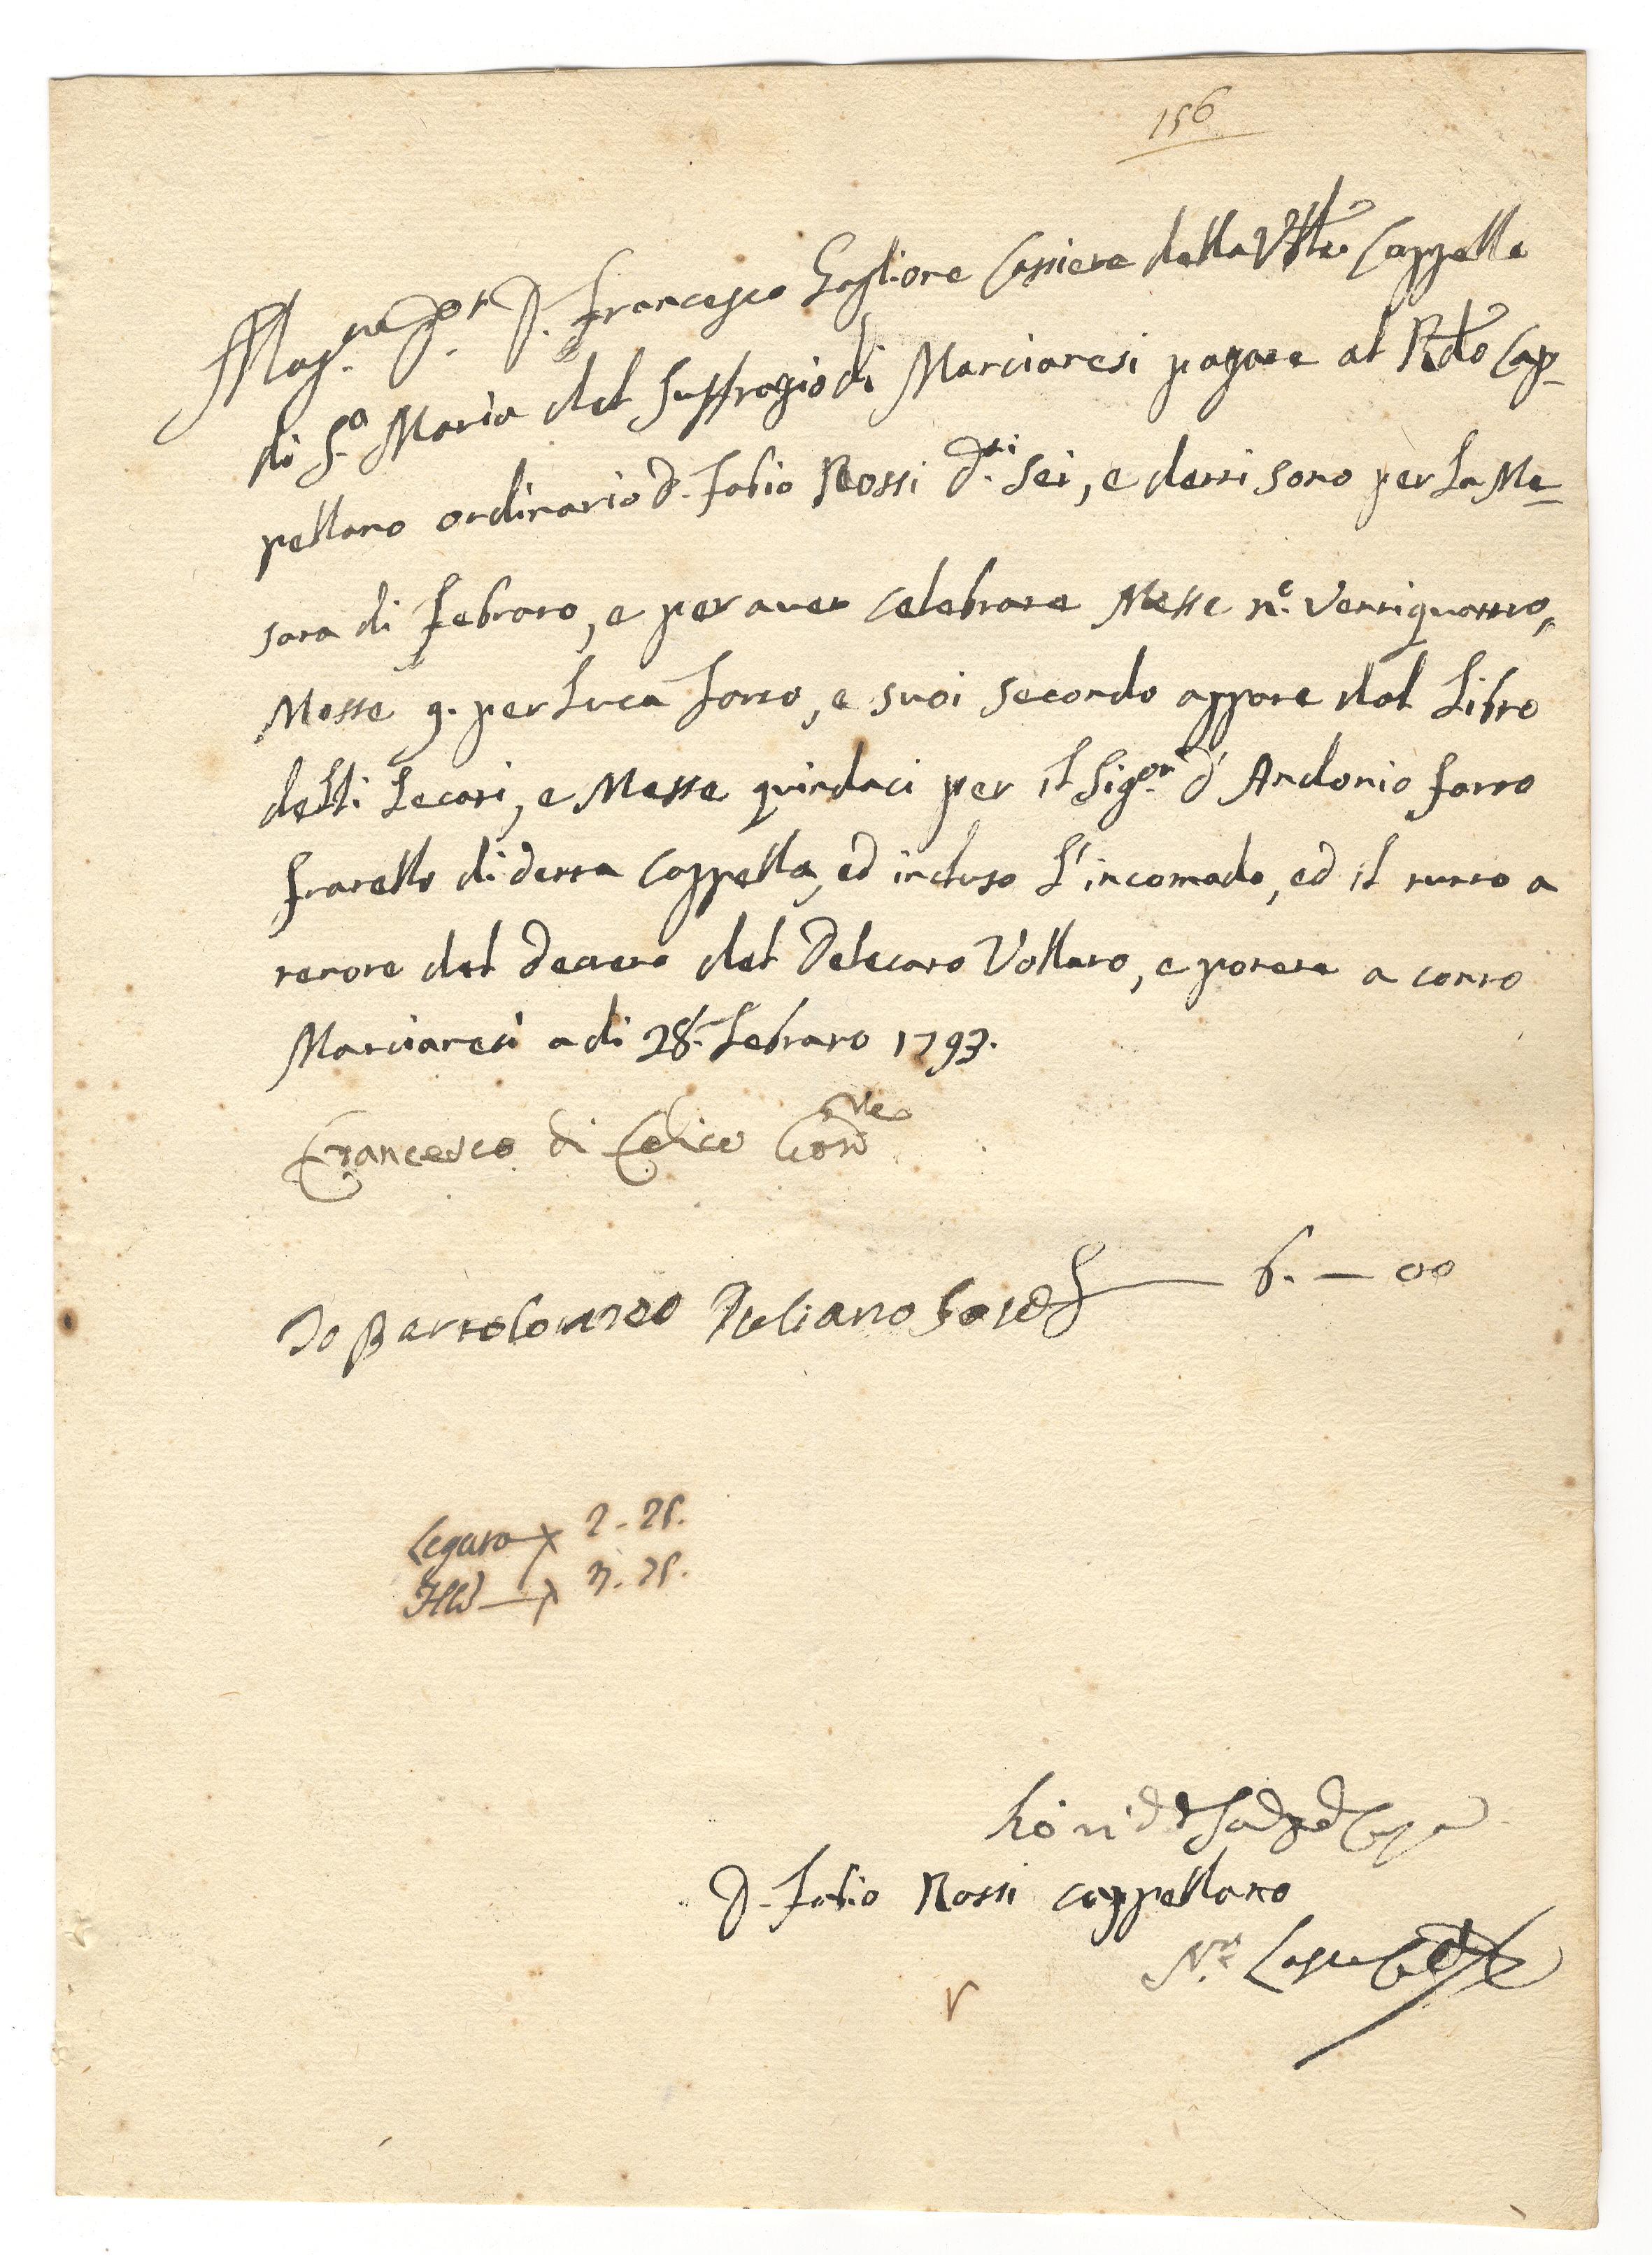 156
Mag.co Sig.r D. Francesco Gaglione Cassiere della Ven.le Cappella
di S.a Maria del Suffragio di Marcianesi pagate al R.do Cap-
pellano ordinario D. Fabio Rossi d.ti sei, e detti sono per la Me-
sata di Febraro, e per aver celebrate Messe n.o ventiquattro,
Messe 9. per Luca Farro, e suoi secondo appare dal Libro
delli Lecati, e Messe quindeci per il Sig.or D. Andonio Farro
fratello di detta Cappella, ed incluso l'incomodo, ed il tutto a
tenore del Decreto del Delecato Vollaro, e ponete a conto
Marcianesi a di 28. Febraro 1793.
Francesco di Felice
Io Bartolomeo Iuliano 6. — 00
Legato 2 - 25.
3. 75.
D. Fabio Rossi Cappellano